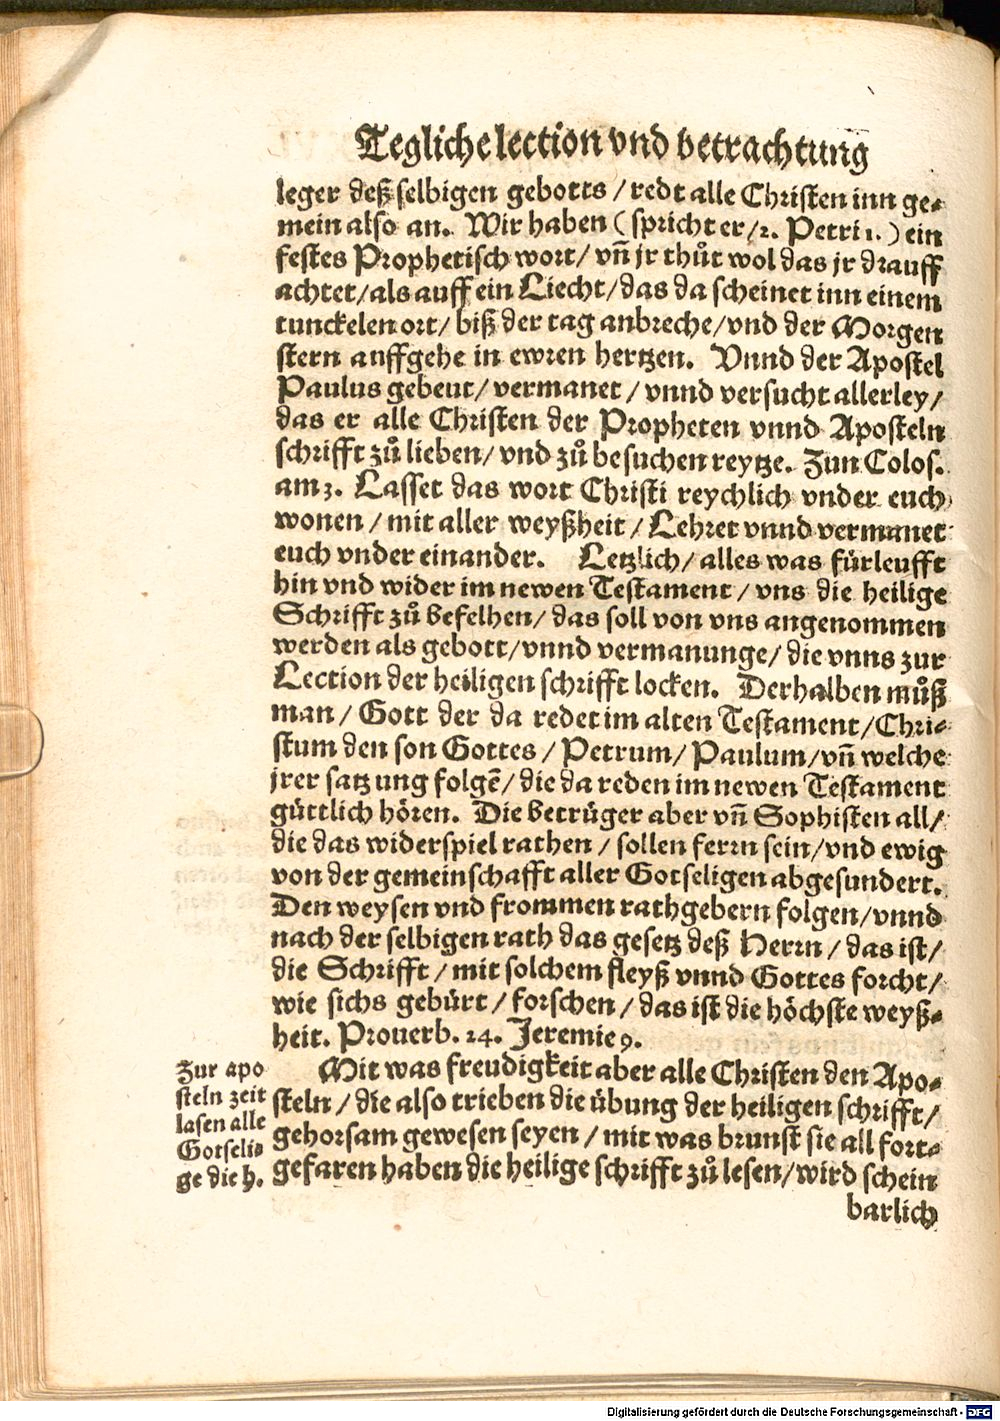 Tegliche lection vnd betrachtung
leger deß selbigen gebotts / redt alle Christen inn ge-
mein also an. Wir haben ( spricht er / 2. Petri 1. ) ein
festes Prophetisch wort / vñ jr thůt wol das jr drauff
achtet / als auff ein Liecht / das da scheinet inn einem
tunckelen ort / biß der tag anbreche / vnd der Morgen
stern auffgehe in ewren hertzen. Vnnd der Apostel
Paulus gebeut / vermanet / vnnd versucht allerley /
das er alle Christen der Propheten vnnd Aposteln
schrifft zů lieben / vnd zů besuchen reytze. Zun Colos.
am 3. Lasset das wort Christi reychlich vnder euch
wonen / mit aller weyßheit / Lehret vnnd vermanet
euch vnder einander. Letzlich / alles was fürleufft
hin vnd wider im newen Testament / vns die heilige
Schrifft zů befelhen / das soll von vns angenommen
werden als gebott / vnnd vermanunge / die vnns zur
Lection der heiligen schrifft locken. Derhalben můß
man / Gott der da redet im alten Testament / Chri-
stum den son Gottes / Petrum / Paulum / vñ welche
jrer satzung folgẽ / die da reden im newen Testament
güttlich hören. Die betrüger aber vñ Sophisten all /
die das widerspiel rathen / sollen ferrn sein / vnd ewig
von der gemeinschafft aller Gotseligen abgesundert.
Den weysen vnd frommen rathgebern folgen / vnnd
nach der selbigen rath das gesetz deß Herrn / das ist /
die Schrifft / mit solchem fleyß vnnd Gottes forcht /
wie sichs gebürt / forschen / das ist die höchste weyß-
heit. Prouerb. 24. Jeremie 9.
Zur apo
steln zeit
lasen alle
Gotseli-
ge die h.
Mit was freudigkeit aber alle Christen den Apo-
steln / die also trieben die übung der heiligen schrifft /
gehorsam gewesen seyen / mit was brunst sie all fort-
gefaren haben die heilige schrifft zů lesen / wird schein
barlich
Digitalisierung gefördert durch die Deutsche Forschungsgemeinschaft - DFG